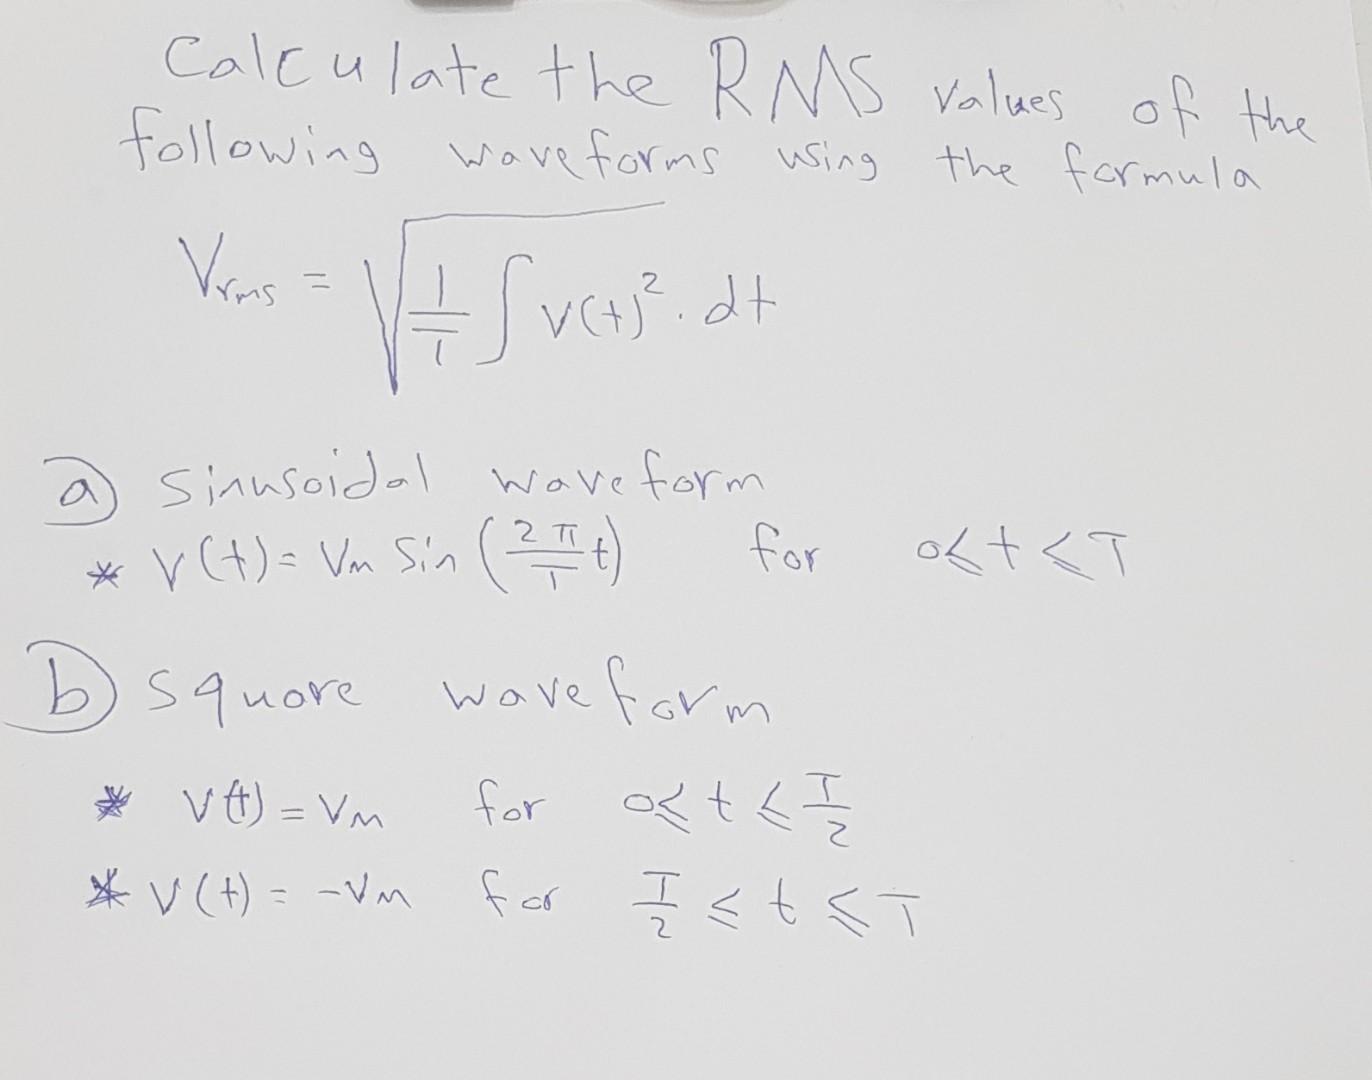 Calculate the RMS values of the
following waveforms using the formula
Vrms = √(1/T ∫ v(t)² . dt
a) sinusoidal waveform
* V(t) = Vm Sin (2π/T t) for 0 ≤ t ≤ T
b) square waveform
* V(t) = Vm for 0 ≤ t ≤ T/2
* V(t) = -Vm for T/2 ≤ t ≤ T